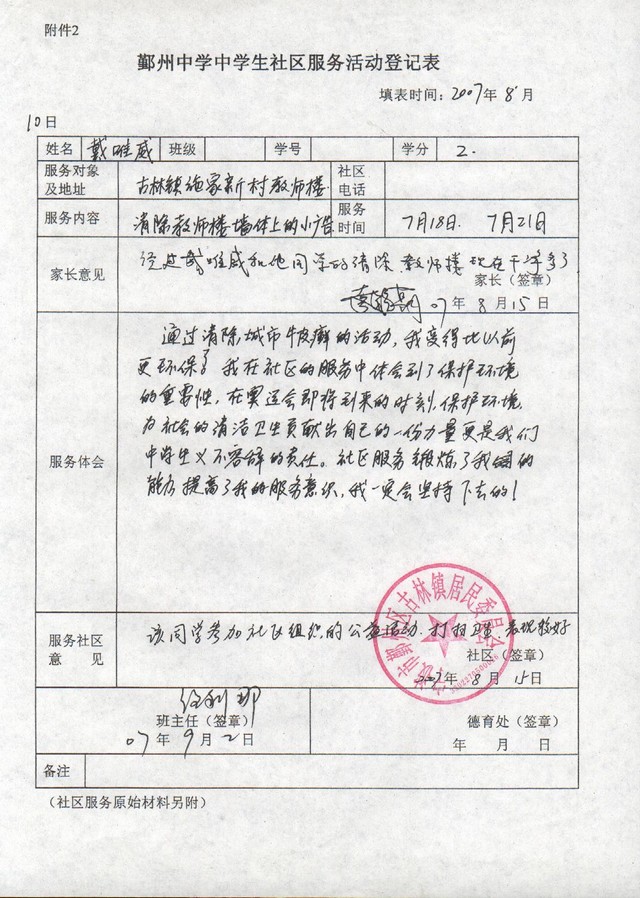 附件2
鄞州中学中学生社区服务活动登记表
填表时间：2007年8月
10日
姓名 戴唯威 班级 学号 学分 2.
服务对象及地址 古林镇施家新村教师楼 社区电话
服务内容 清除教师楼墙体上的小广告 服务时间 7月18日. 7月21日
家长意见 经过戴唯威和他同学的清除 教师楼现在干净多了
家长（签章）
07年8月15日
通过清除城市牛皮癣的活动，我变得比以前
更环保了 我在社区的服务中体会到了保护环境
的重要性，在奥运会即将到来的时刻，保护环境，
为社会的清洁卫生贡献出自己的一份力量更是我们
服务体会 中学生义不容辞的责任。社区服务锻炼了我的
能力 提高了我的服务意识，我一定会坚持下去的！
服务社区意见 该同学参加社区组织的公益活动.打扫卫生 表现较好
社区（签章）
2007年8月15日
宁波市鄞州区古林镇居民委员会
班主任（签章） 德育处（签章）
07年9月2日 年 月 日
备注
（社区服务原始材料另附）